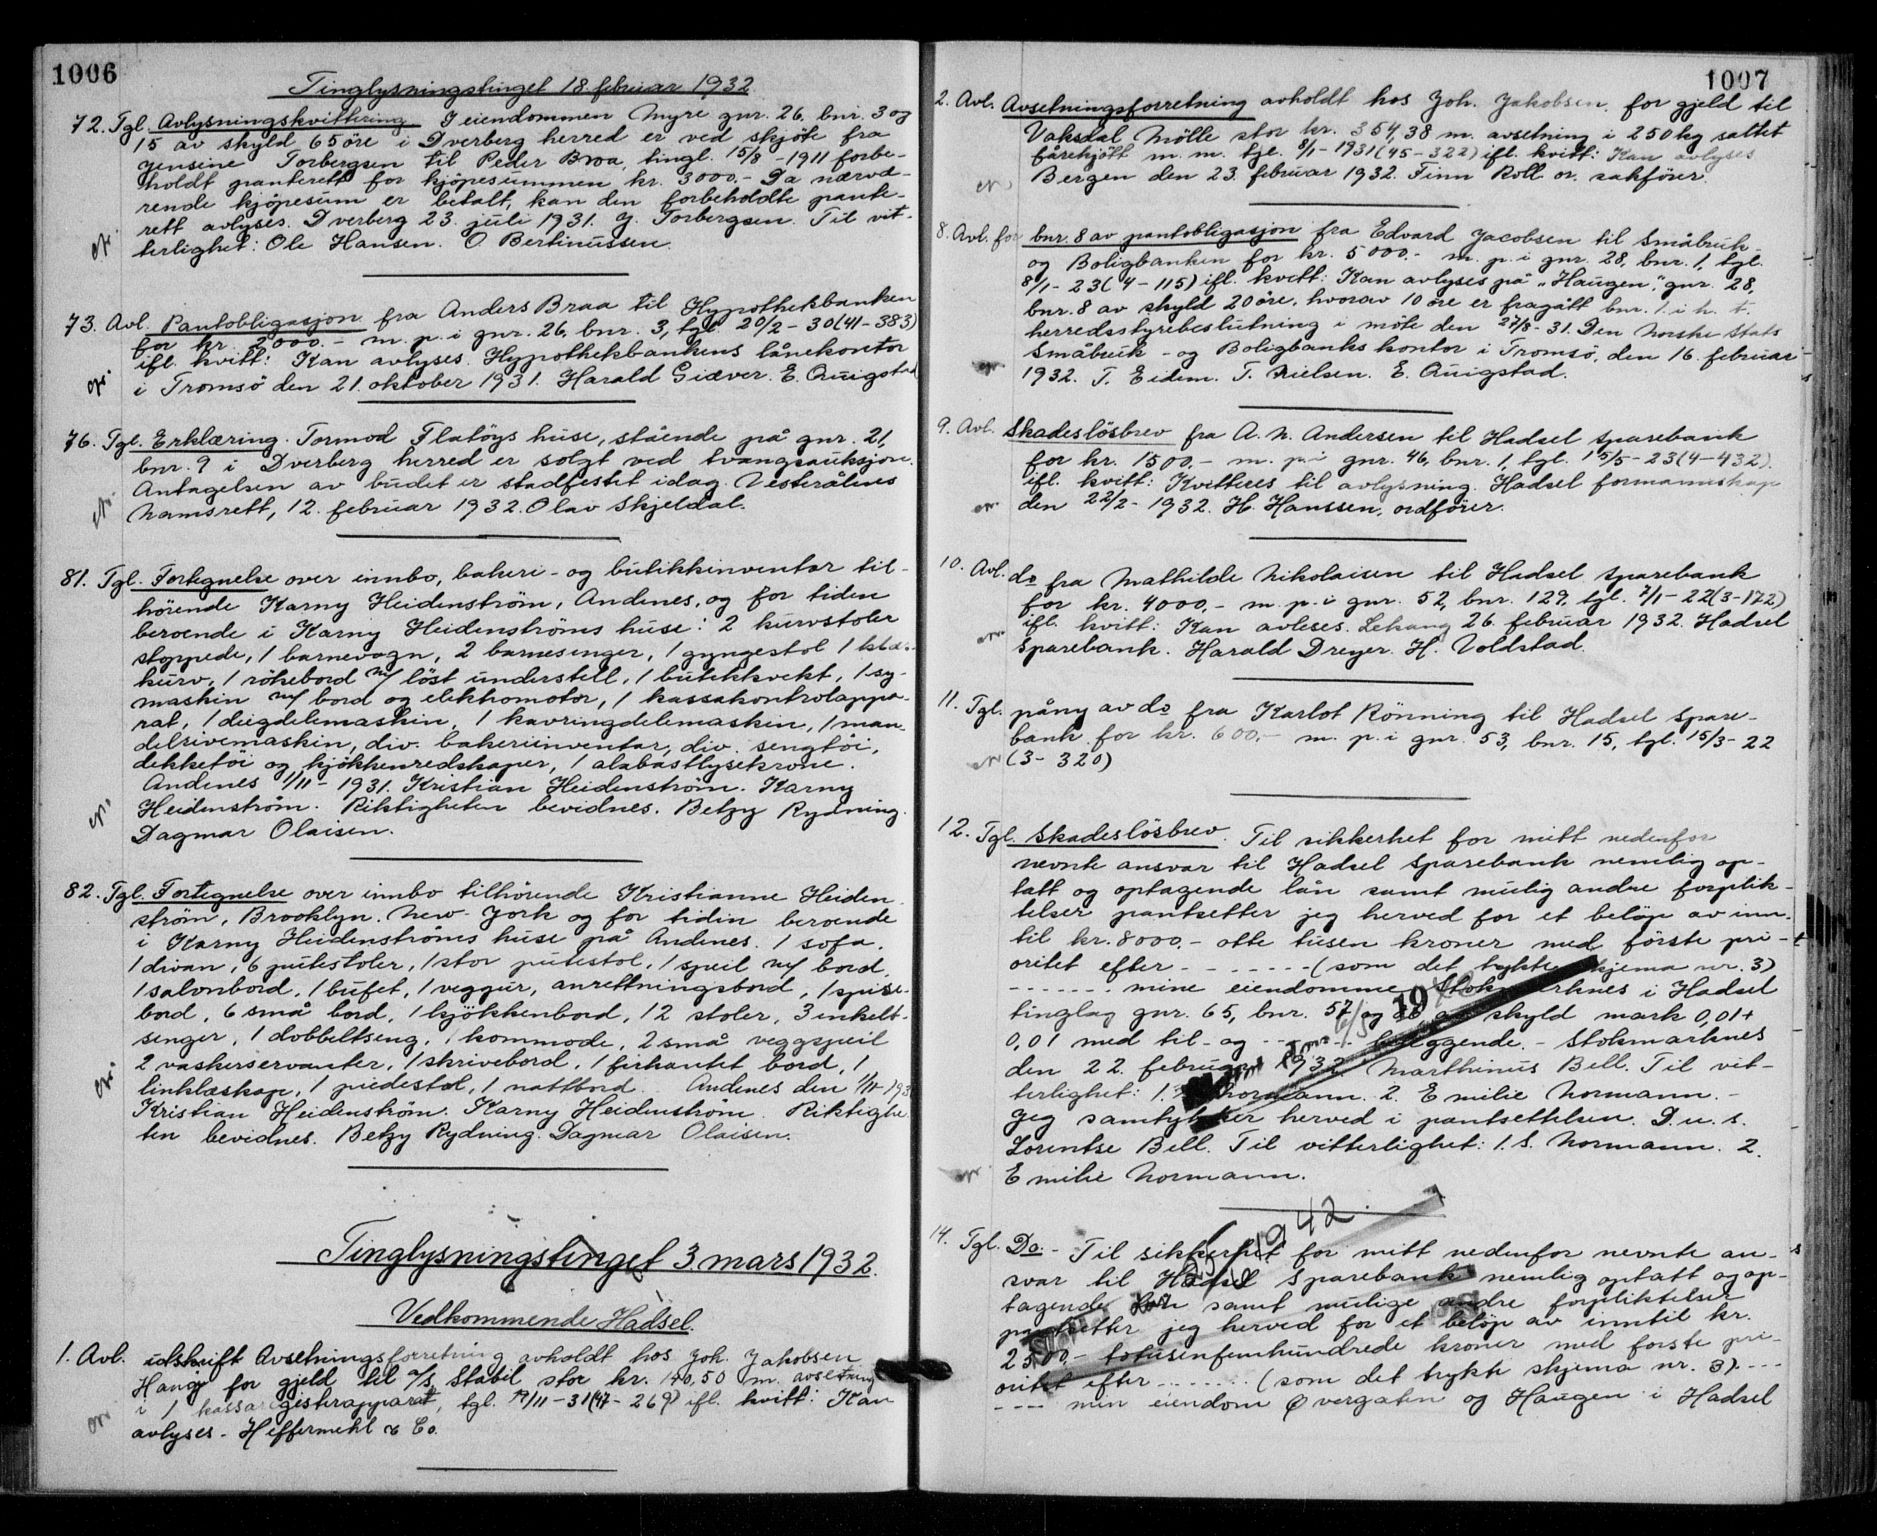 1006
Tinglysningstinget 18. februar 1932.
72. Tgl. Avlysningskvittering. I eiendommen Myre gnr. 26. bnr. 3 og
15 av skyld 65 öre i Dverberg herred er ved skjöte fra
Jensine Torbergsen til Peder Braa, tingl. 15/8 - 1911 forbe-
holdt panterett for kjöpesummen kr. 3000.- Da nærvæ-
rende kjöpesum er betalt, kan den forbeholdte pante-
rett avlyses. Dverberg 23. juli 1931. J. Torbergsen. Til vit-
terlighet: Ole Hansen. O. Bertinussen.
73. Avl. Pantobligasjon fra Anders Braa til Hypothekbanken
for kr. 2000.- m. p. i gnr. 26, bnr. 3, tgl. 20/2 - 30 (41 - 383)
ifl. kvitt: Kan avlyses. Hypothekbankens lånekontor
i Tromsö den 21. oktober 1931. Harald Giæver. E. Quigstad
76. Tgl. Erklæring. Tormod Flatöys huse, stående på gnr. 21,
bnr. 9 i Dverberg herred er solgt ved tvangsauksjon.
Antagelsen av budet er stadfestet idag. Vesterålens
namsrett, 12. februar 1932. Olav Skjeldal.
81. Tgl. Fortegnelse over innbo, bakeri- og butikkinventar til-
hörende Karny Heidenström, Andenes, og for tiden
beroende i Karny Heidenströms huse: 2 kurvstoler
stoppede, 1 barnevogn, 2 barnesenger, 1 gyngestol 1
kurv, 1 rökebord m/ löst understell, 1 butikkvekt, 1 sy-
maskin m/ bord og elektromotor, 1 kassakontrolappa-
rat, 1 deigdelemaskin, 1 kavringdelemaskin, 1 man-
delrivemaskin, div. bakeriinventar, div. sengtöi,
dekketöi og kjökkenredskaper, 1 alabastlysekrone.
Andenes 1/11 - 1931. Kristian Heidenström. Karny
Heidenström. Riktigheten bevidnes. Betzy Rydning.
Dagmar Olaisen.
82. Tgl. Fortegnelse over innbo tilhörende Kristianne Heiden
ström, Brooklyn. New-York og for tiden beroende
i Karny Heidenströms huse på Andenes. 1 sofa,
1 divan, 6 putestoler, 1 stor putestol, 1 speil m/ bord,
1 salonbord, 1 bufet, 1 veggur, anretningsbord, 1 spise-
bord, 6 små bord, 1 kjökkenbord, 12 stoler, 3 enkelt-
senger, 1 dobbeltseng, 1 kommode, 2 små veggspeil
2 vaskerservanter, 1 skrivebord, 1 firkantet bord, 1
linklæskap, 1 piedestal, 1 nattbord. Andenes den 1/11- 193
Kristian Heidenström. Karny Heidenström. Riktighe
ten bevidnes. Betzy Rydning. Dagmar Olaisen.
Tinglysningstinget 3. mars 1932.
Vedkommende Hadsel.
1. Avl. utskrift Avsetningsforretning avholdt hos Joh. Jakobsen
Haug for gjeld til A/S Stabil stor kr. 140,50 m. avsetning
i 1 kassaregistrapparat, tgl. 19/11 - 31 (44 - 269) ifl. kvitt: Kan
avlyses. Heffermehl & Co.
1007
2. Avl. Avsetningsforretning avholdt hos Joh. Jakobsen for gjeld til
Vaksdal Mölle stor kr. 354,38 m. avsetning i 250 kg saltet
fårekjött m. m. tgl. 8/1 - 1931 (45 - 322) ifl. kvitt: Kan avlyses
Bergen den 23. februar 1932. Finn Roll or. sakförer.
8. Avl. for bnr. 8 av pantobligasjon fra Edvard Jacobsen til Småbruk-
og Boligbanken for kr. 5000.- m. p. i gnr. 28, bnr. 1, tgl.
8/1 - 23 (4 - 115) ifl. kvitt: Kan avlyses på "Haugen", gnr. 28,
bnr. 8 av skyld 20 öre, hvorav 10 öre er fragått bnr. 1 i h. t.
herredsstyrebeslutning i möte den 27/8 - 31. Den Norske Stats
Småbruk- og Boligbanks kontor i Tromsö, den 16. februar
1932. T. Eidem. T. Nielsen. E. Quigstad.
9. Avl. Skadeslösbrev fra A. N. Andersen til Hadsel Sparebank
for kr. 1500.- m. p. i gnr. 46, bnr. 1, tgl. 15/5 - 23 (4 - 432).
ifl. kvitt: Kvitteres til avlysning. Hadsel formannskap
den 22/2 - 1932. H. Hanssen, ordförer.
10. Avl. do fra Mathilde Nikolaisen til Hadsel Sparebank
for kr. 4000.- m. p. i gnr. 52, bnr. 129, tgl. 7/1 - 22 (3 - 172)
ifl. kvitt: Kan avleses. Lekang 26. februar 1932. Hadsel
Sparebank. Harald Dreyer. H. Voldstad.
11. Tgl. påny av do fra Karlot Rönning til Hadsel Spare-
bank for kr. 600.- m. p. i gnr. 53, bnr. 15, tgl. 15/3 - 22
(3 - 320)
12. Tgl. Skadeslösbrev. Til sikkerhet for mitt nedenfor
nevnte ansvar til Hadsel Sparebank nemlig op-
tatt og optagende lån samt mulig andre forplik-
telser pantsetter jeg herved for et belöp av inn-
til kr. 8000.- otte tusen kroner med förste pri-
oritet efter - - - - - - (som det trykte skjema nr. 3)
- - - - - - mine eiendommer Stokmarknes i Hadsel
tinglag gnr. 65, bnr. 57 og av skyld mark 0,01 +
0,01 med til- og - - - - liggende. - Stokmarknes
den 22. februar 1932. Marthinus Bell. Til vit-
terlighet: 1. S. Normann. 2. Emilie Normann. -
Jeg samtykker herved i pantsettelsen. D. u. s.
Lorentse Bell. Til vitterlighet: 1. S. Normann. 2.
Emilie Normann.
14. Tgl. Do - Til sikkerhet for mitt nedenfor nevnte an-
svar til Hadsel Sparebank nemlig optatt og op-
tagende lån samt mulige andre forpliktelser
pantsetter jeg herved for et belöp av inntil kr.
2500.- totusenfemhundrede kroner med förste pri-
oritet efter - - - - - - (som det trykte skjema nr. 3). - - -
- - - - min eiendom Övergaten og Haugen i Hadsel
1942